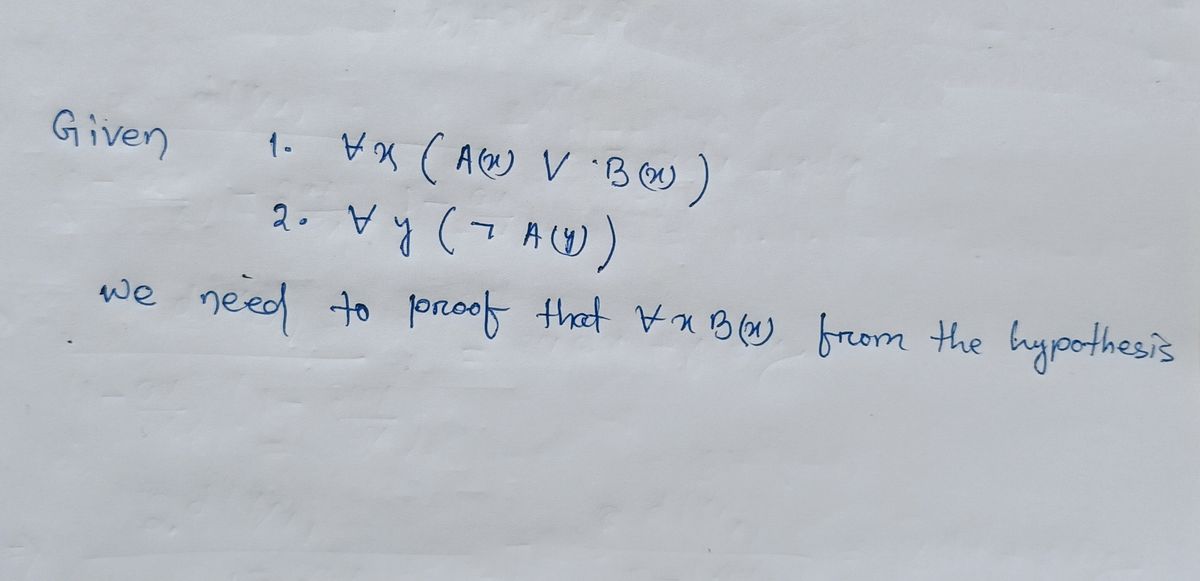 Given 1. ∀x (A(x) ∨ B(x))
2. ∀y (¬A(y))
we need to proof that ∀x B(x) from the hypothesis